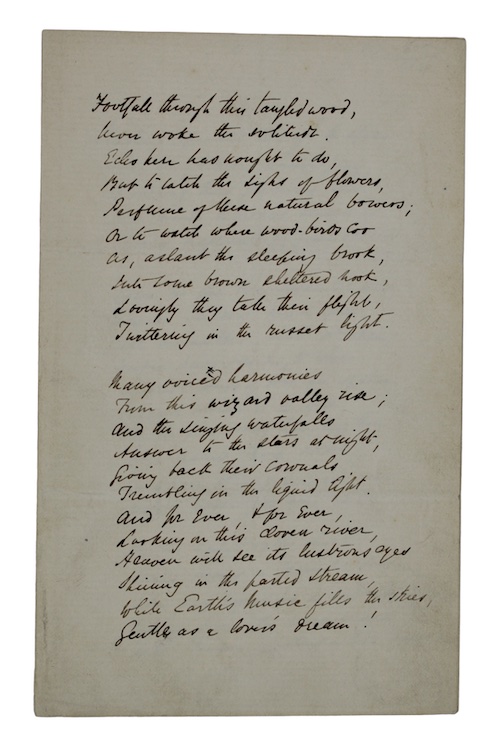 Footfall through this tangled wood,
Never woke the solitude.
Echo here has nought to do,
But to catch the sighs of flowers,
Perfume of these natural bowers;
Or to watch where wood-birds coo
As, aslant the sleeping brook,
Into some brown sheltered nook,
Lovingly they take their flight,
Twittering in the russet light.

Many voiced harmonies
From this wizard valley rise;
And the singing waterfalls
Answer to the stars at night,
Giving back their coronals
Trembling in the liquid light.
And for Ever & for Ever,
Looking on this cloven river,
Heaven will see its lustrous eyes
Shining in the parted stream,
While Earth's Music fills the skies,
Gentle as a lover's dream!